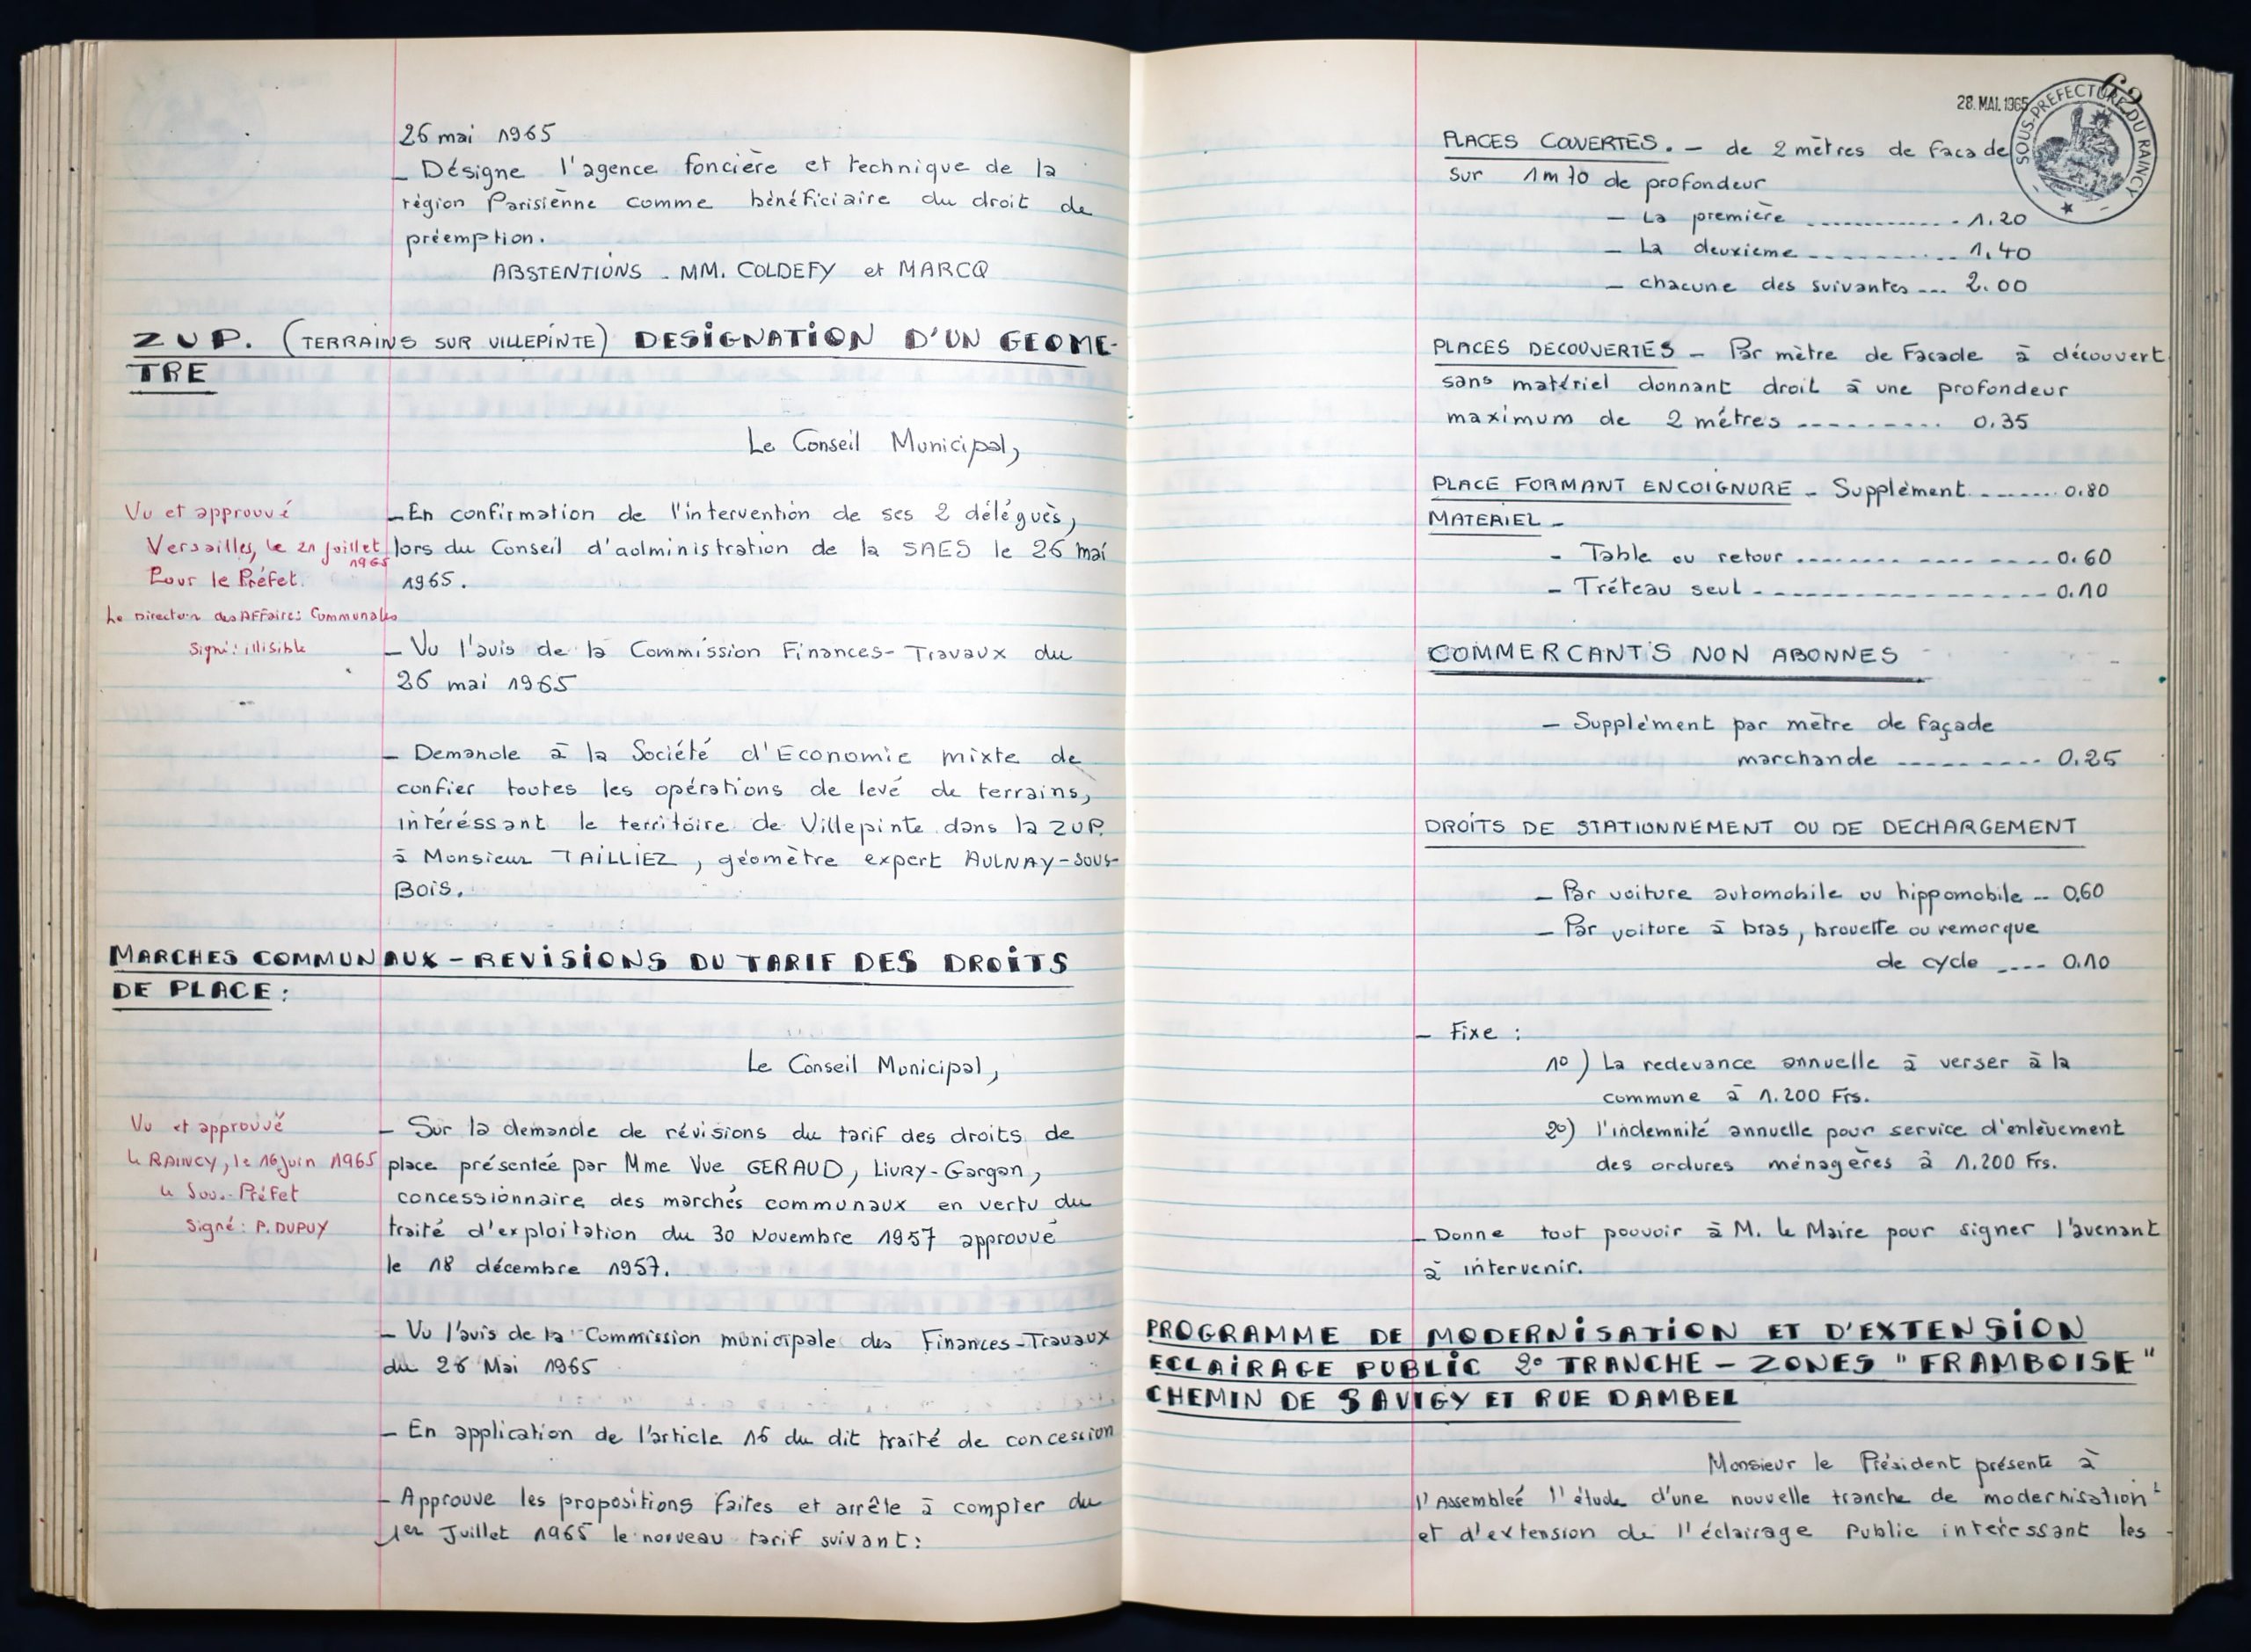 26 mai 1965
_ Désigne l'agence foncière et technique de la
région Parisiènne comme bénéficiaire du droit de
préemption.
ABSTENTIONS _ MM. COLDEFY et MARCQ
ZUP. (TERRAINS SUR VILLEPINTE) DESIGNATION D'UN GEOME-
TRE
Le Conseil Municipal,
Vu et approuvé
Versailles, le 21 juillet
1965
Pour le Préfet.
Le Directeur des Affaires Communales
Signé: illisible
_ En confirmation de l'intervention de ses 2 délégués,
lors du Conseil d'administration de la SAES le 26 mai
1965.
_ Vu l'avis de la Commission Finances-Travaux du
26 mai 1965
_ Demande à la Société d'Economie mixte de
confier toutes les opérations de levé de terrains,
intéréssant le territoire de Villepinte dans la ZUP.
à Monsieur TAILLIEZ, géomètre expert AULNAY-SOUS-
BOIS.
MARCHES COMMUNAUX - REVISIONS DU TARIF DES DROITS
DE PLACE:
Le Conseil Municipal,
Vu et approuvé
Le RAINCY, le 16 juin 1965
Le Sous-Préfet
Signé: P. DUPUY
_ Sur la demande de révisions du tarif des droits de
place présentée par Mme Vue GERAUD, LIVRY-Gargan,
concessionnaire des marchés communaux en vertu du
traité d'exploitation du 30 Novembre 1957 approuvé
le 18 décembre 1957.
_ Vu l'avis de la Commission municipale des Finances-Travaux
du 26 Mai 1965
_ En application de l'article 16 du dit traité de concession
_ Approuve les propositions faites et arrête à compter du
1er Juillet 1965 le nouveau tarif suivant:
28. MAI. 1965
SOUS-PREFECTURE DU RAINCY
PLACES COUVERTES. _ de 2 mètres de facade
sur 1m70 de profondeur
_ La première ............ 1.20
_ La deuxieme ............ 1.40
_ chacune des suivantes ... 2.00
PLACES DECOUVERTES _ Par mètre de Facade à découvert
sans matériel donnant droit à une profondeur
maximum de 2 mètres ---------- 0.35
PLACE FORMANT ENCOIGNURE _ Supplément ........ 0.80
MATERIEL _
- Table ou retour ................ 0.60
- Tréteau seul ------------------ 0.10
COMMERCANTS NON ABONNES
_ Supplément par mètre de façade
marchande ---------- 0.25
DROITS DE STATIONNEMENT OU DE DECHARGEMENT
_ Par voiture automobile ou hippomobile -- 0.60
_ Par voiture à bras, brouette ou remorque
de cycle ---- 0.10
_ Fixe :
1°) La redevance annuelle à verser à la
commune à 1.200 Frs.
2°) l'indemnité annuelle pour service d'enlèvement
des ordures ménagères à 1.200 Frs.
_ Donne tout pouvoir à M. le Maire pour signer l'avenant
à intervenir.
PROGRAMME DE MODERNISATION ET D'EXTENSION
ECLAIRAGE PUBLIC 2° TRANCHE - ZONES "FRAMBOISE"
CHEMIN DE SAVIGY ET RUE DAMBEL
Monsieur le Président présente à
l'Assembleé l'étude d'une nouvelle tranche de modernisation
et d'extension de l'éclairage Public intéressant les